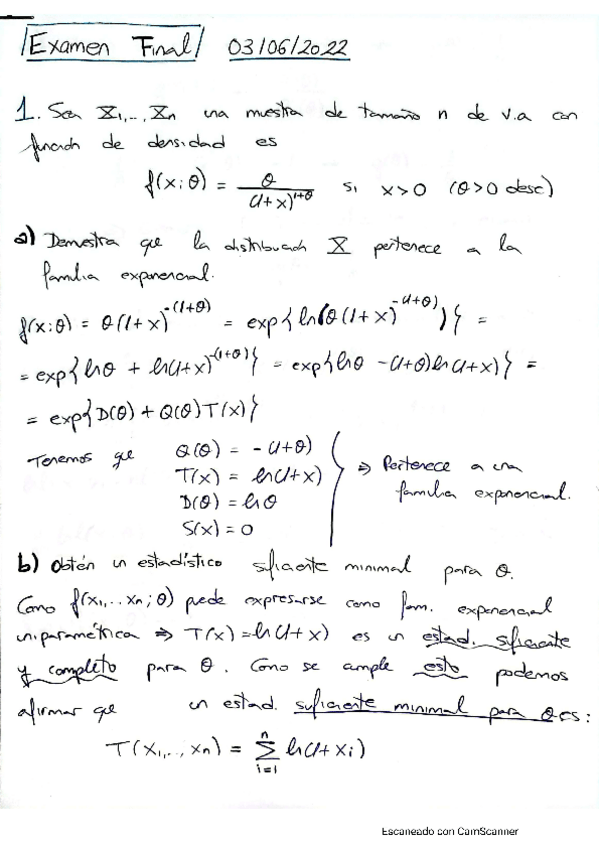 Examen Final 03/06/2022
1. Sea X1,.., Xn una muestra de tamaño n de v.a con
función de densidad es
f(x;θ) = θ / (1+x)^(1+θ) si x>0 (θ>0 desc)
a) Demuestra que la distribución X pertenece a la
familia exponencial.
f(x;θ) = θ(1+x)^-(1+θ) = exp{ln(θ(1+x)^-(1+θ))} =
= exp{lnθ + ln(1+x)^-(1+θ)} = exp{lnθ -(1+θ)ln(1+x)} =
= exp{D(θ) + Q(θ)T(x)}
Tenemos que Q(θ) = -(1+θ)
T(x) = ln(1+x)
D(θ) = lnθ
S(x) = 0
⇒ Pertenece a una
familia exponencial.
b) Obtén un estadístico suficiente minimal para θ.
Como f(x1,..xn;θ) puede expresarse como fam. exponencial
uniparamétrica ⇒ T(x)=ln(1+x) es un estad. suficiente
y completo para θ. Como se cumple esto podemos
afirmar que un estad. suficiente minimal para θ es:
T(x1,.., xn) = ∑_{i=1}^{n} ln(1+xi)
Escaneado con CamScanner